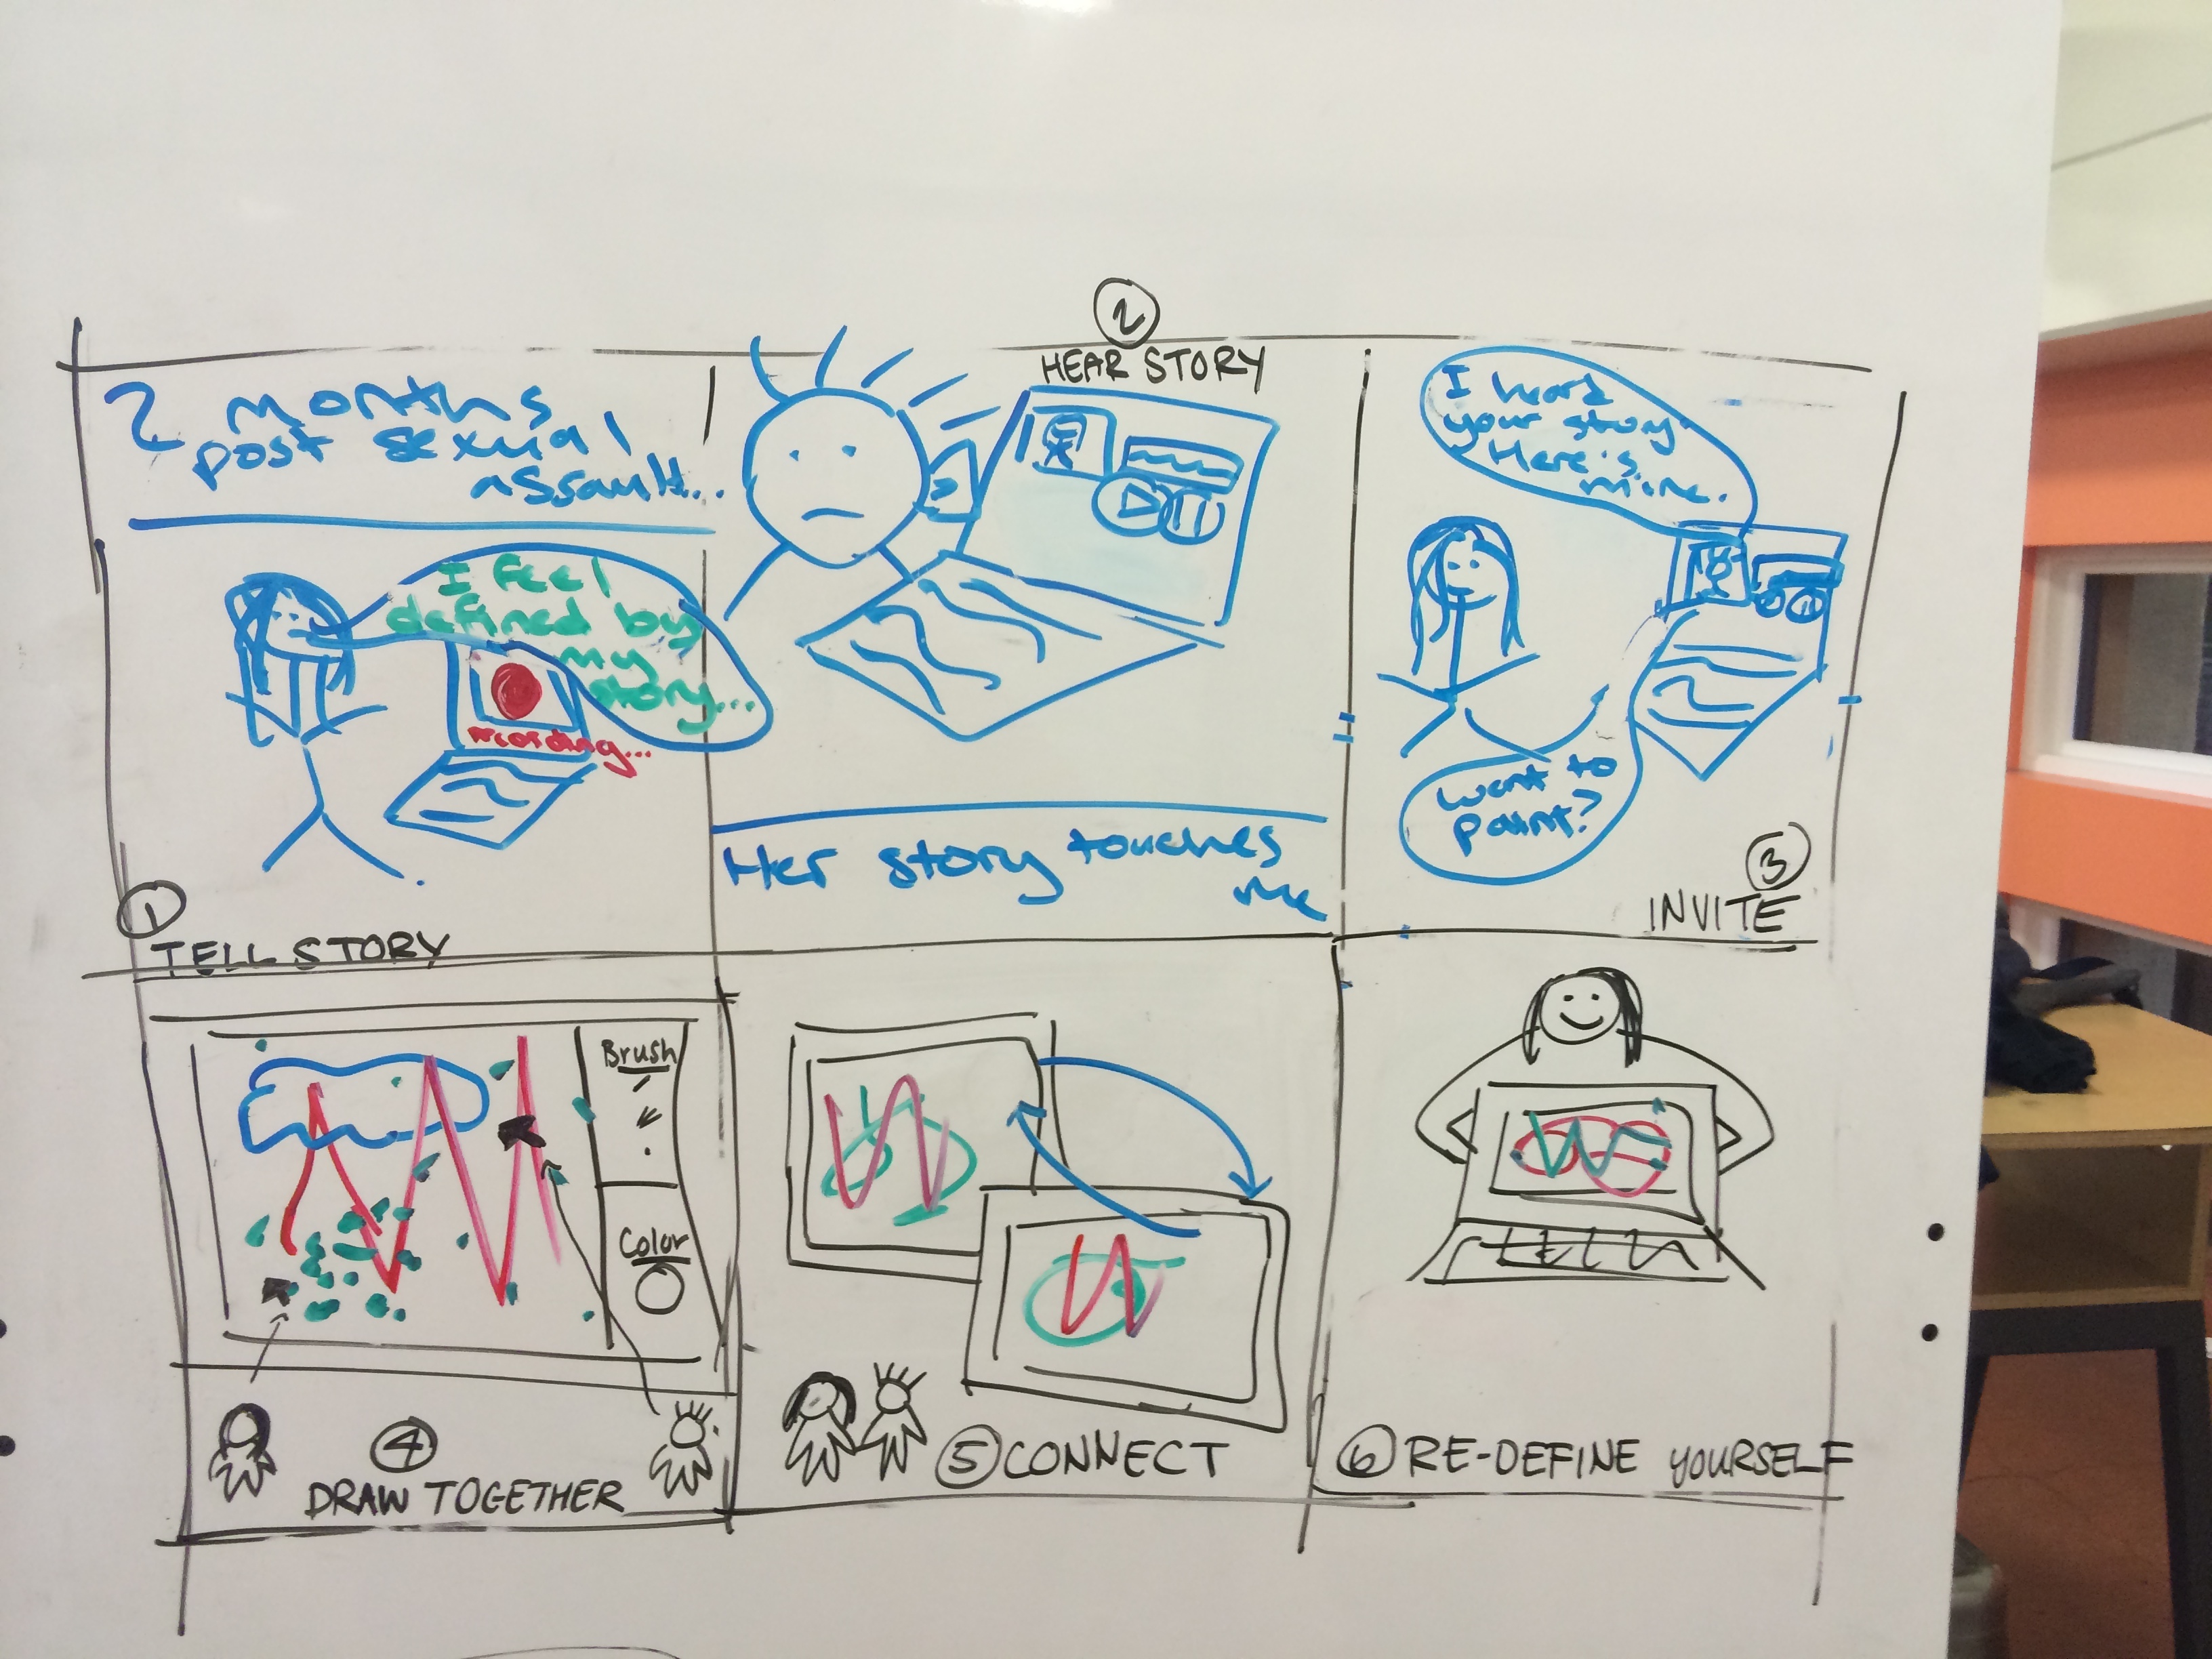 2 months
post sexual
assault...
I feel
defined by
my
story...
recording...
1
TELL STORY
2
HEAR STORY
Her story touches
me
I heard
your story
Here's
mine.
Want to
paint?
3
INVITE
Brush
Color
4
DRAW TOGETHER
5 CONNECT
6 RE-DEFINE YOURSELF